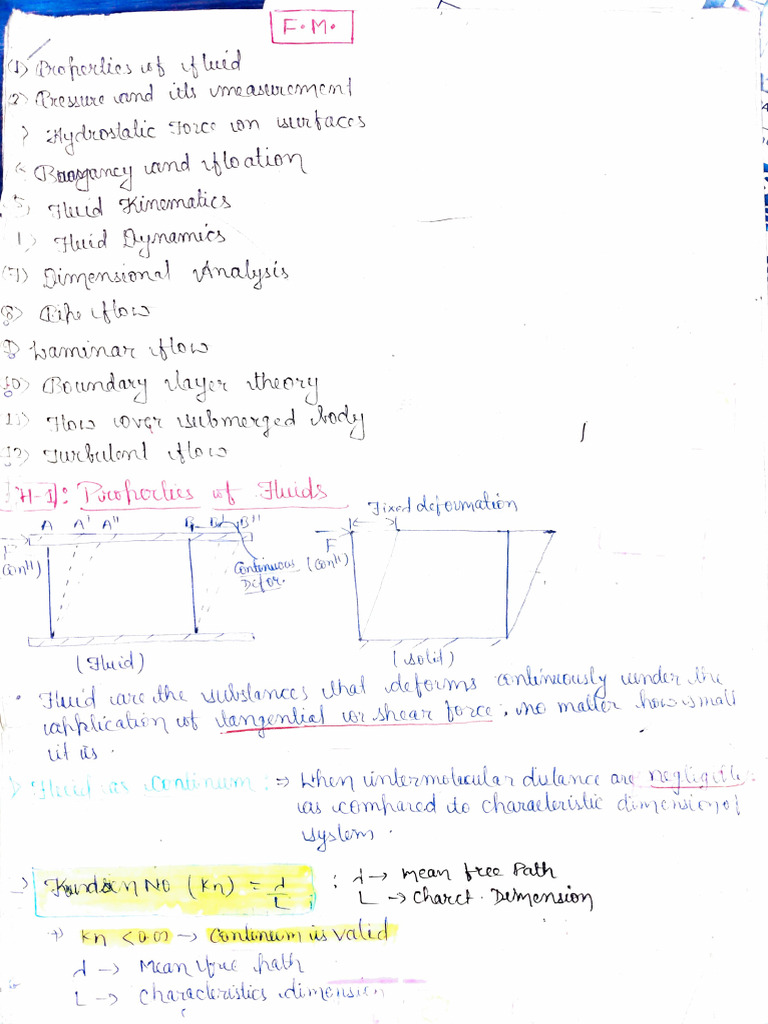 F.M.
(1) Properties of fluid
(2) Pressure and its measurement
) Hydrostatic Force on surfaces
Buoyancy and floation
5) Fluid Kinematics
) Fluid Dynamics
(7) Dimensional Analysis
8) Pipe flow
9) Laminar flow
10) Boundary layer theory
11) Flow over submerged body
12) Turbulent flow
H-1): Properties of Fluids
Fixed deformation
A A' A" B B' B"
F F
(Con") Continuous (Con")
Defor.
(Fluid) (Solid)
• Fluid are the substances that deforms continuously under the
application of tangential or shear force, no matter how small
it is.
) Fluid as Continum :⇒ When intermolecular distance are negligible
as compared to characteristic dimension of
system.
→ No (Kn) = λ/L : λ → mean free Path
L → Charct. Dimension
Kn < → Continum is valid
λ → Mean free path
L → Characteristics dimension